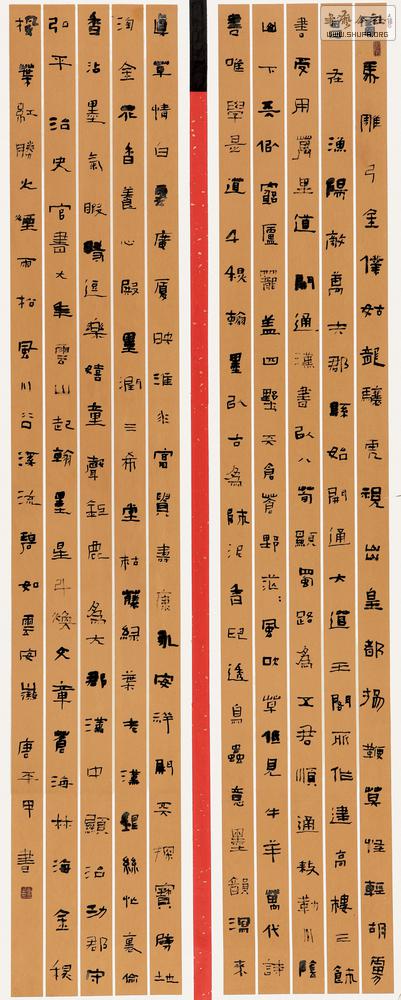 馬雕弓金僕姑龍驤虎視出皇都揚鞭莫怪輕胡虜
在漁陽敵萬夫郡縣始開通大道王閣所作建高樓三餘
書更用萬里道開通漢書以八荀顯蜀路為五君順通敕勒川陰
山下天似窮廬籠蓋四野天倉蒼野茫茫風吹草低見牛羊萬代詩
書唯學是道千線翰墨以古為師泥香印透鳥蟲意墨韻瀉來
草情白廣厦映淮非富貴壽康永安祥開天探寶降地
淘金花香養心殿墨潤三希堂枯藤綠葉老漢銀絲忙裏偷
香沾墨氣暇時逗樂嬉童聲鉅鹿為大郡漢中顯治功郡守
弘平治史官書大年雲山起翰墨星斗煥文章蒼海林海金秋
楓葉紅勝火煙雨松風川谷溪流碧如雲安巖唐平甲書
WWW.SHUFA.ORG